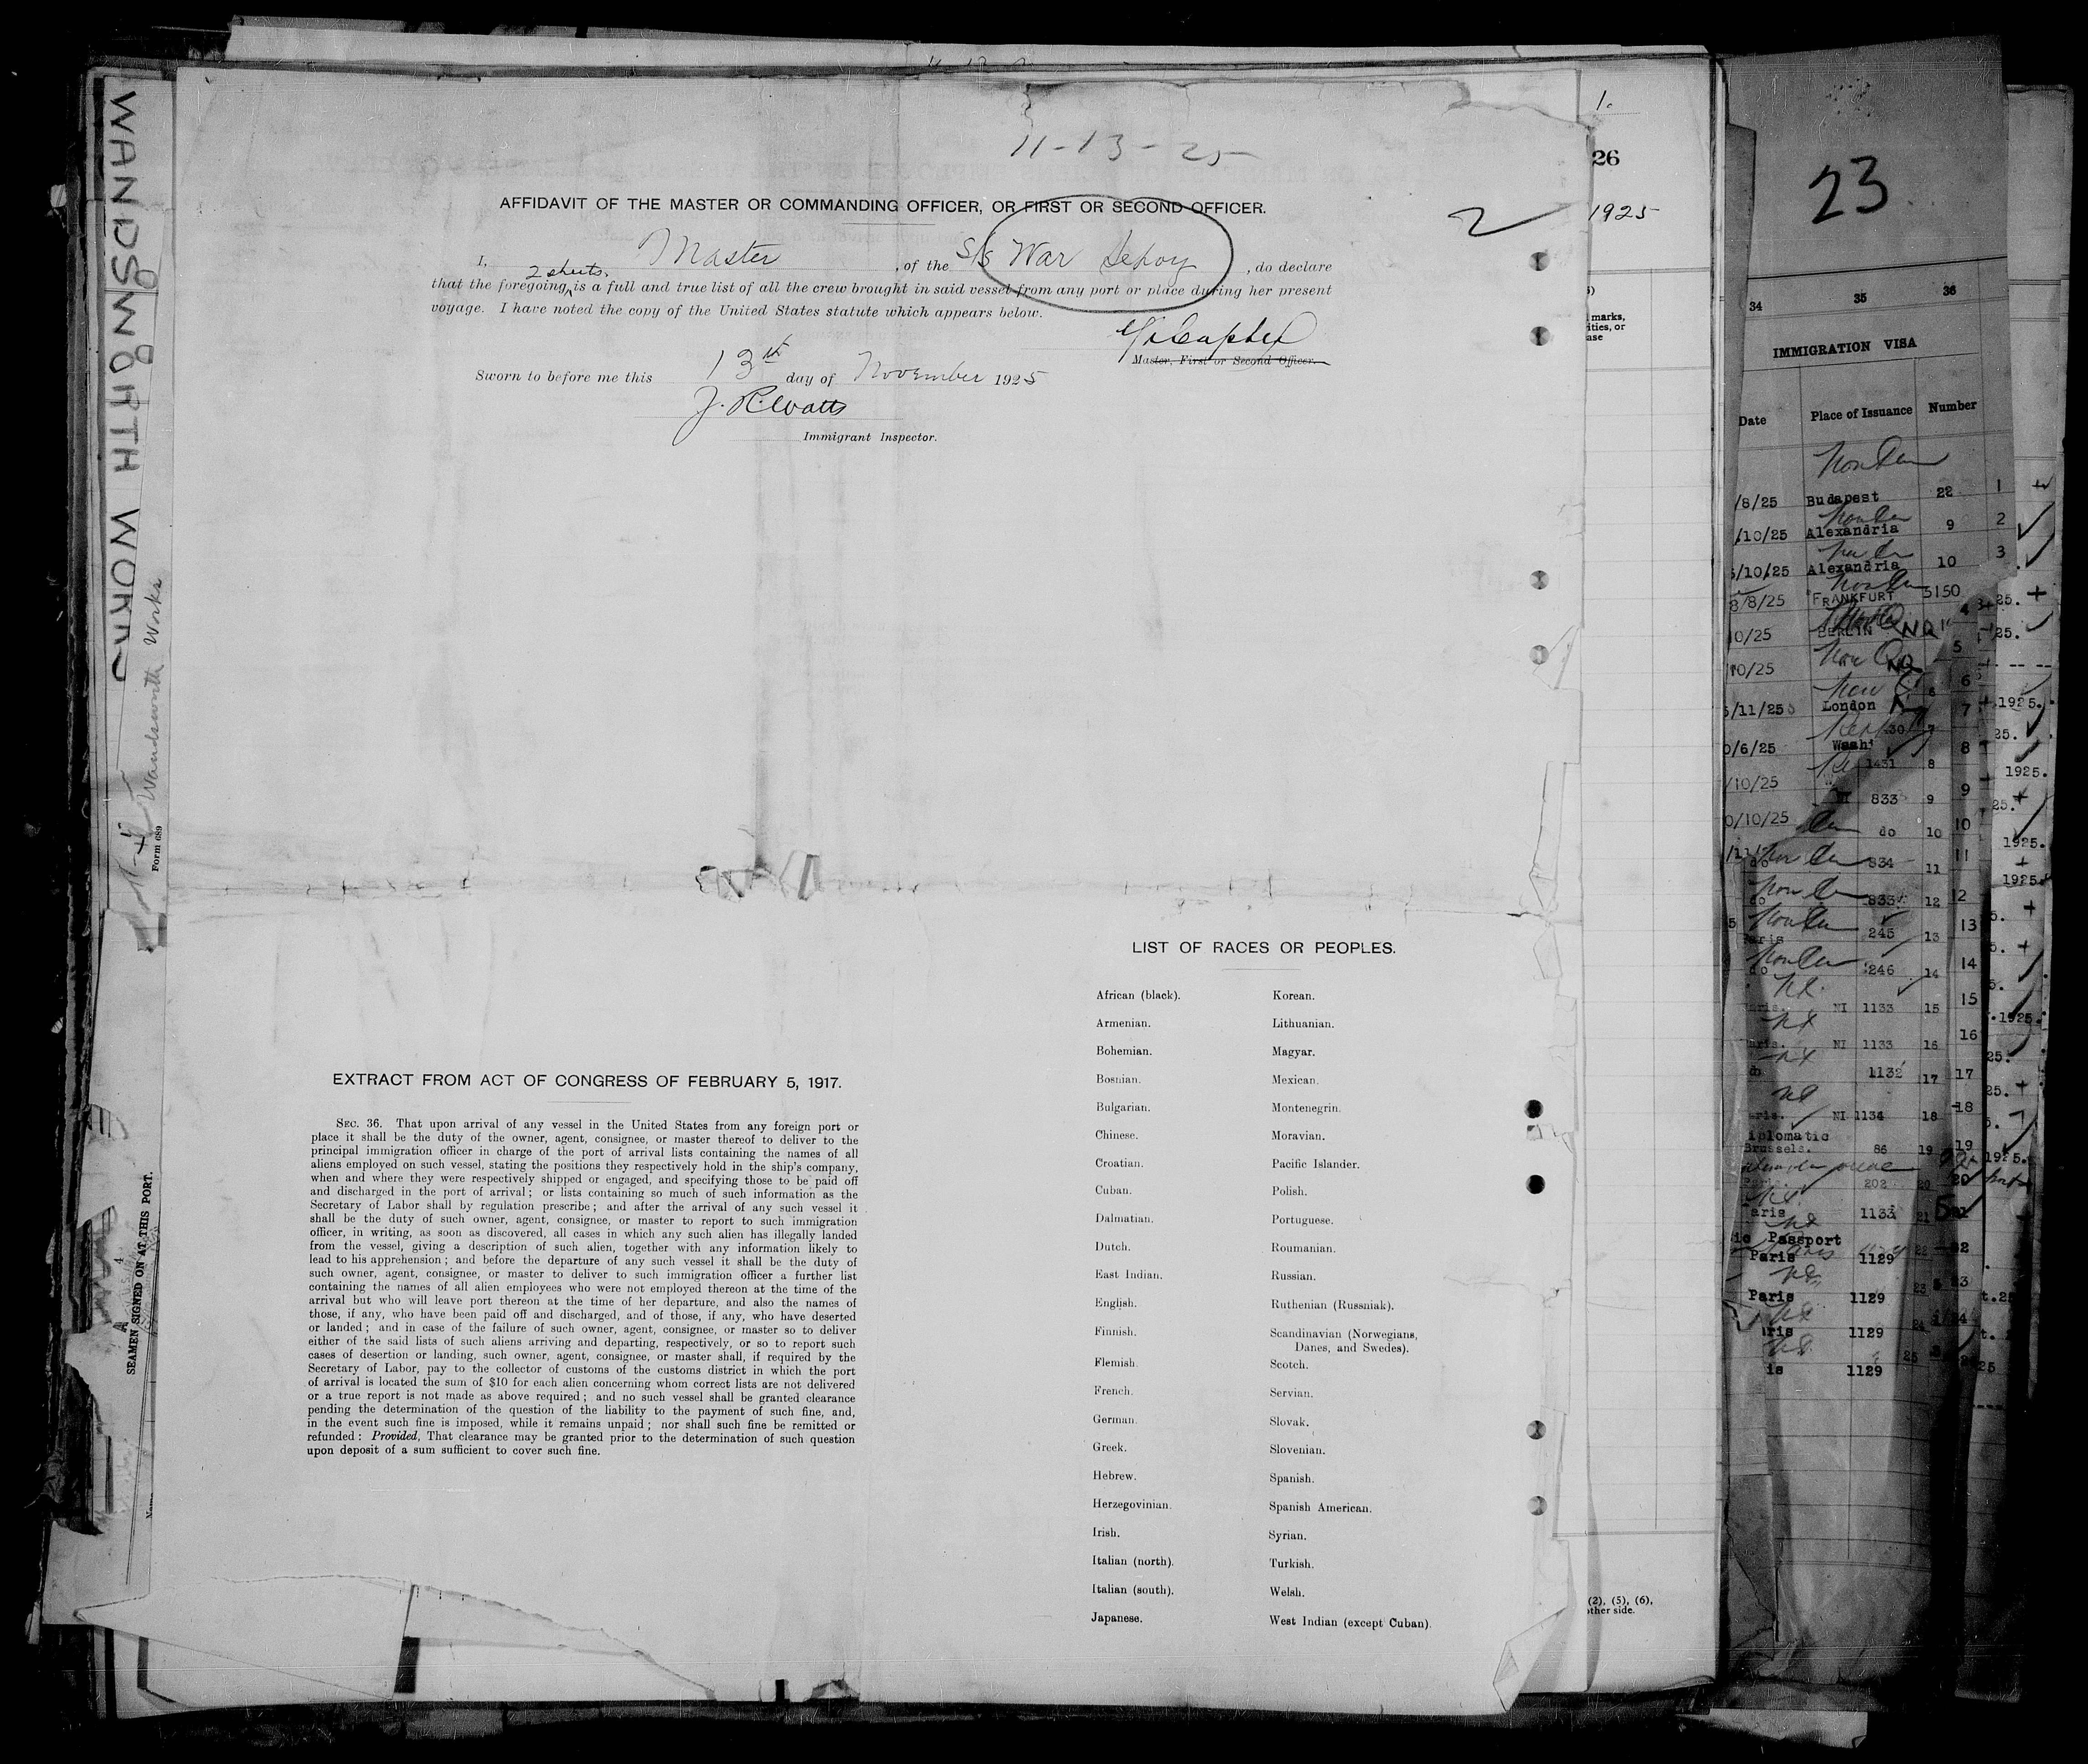 11-13-25
AFFIDAVIT OF THE MASTER OR COMMANDING OFFICER, OR FIRST OR SECOND OFFICER.
2
I, Master, of the S/S War Sepoy, do declare
2 sheets.
that the foregoing is a full and true list of all the crew brought in said vessel from any port or place during her present
voyage. I have noted the copy of the United States statute which appears below.
Master, First or Second Officer.
Sworn to before me this 13th day of November 1925
J. R. Watts
Immigrant Inspector.
EXTRACT FROM ACT OF CONGRESS OF FEBRUARY 5, 1917.
SEC. 36. That upon arrival of any vessel in the United States from any foreign port or
place it shall be the duty of the owner, agent, consignee, or master thereof to deliver to the
principal immigration officer in charge of the port of arrival lists containing the names of all
aliens employed on such vessel, stating the positions they respectively hold in the ship's company,
when and where they were respectively shipped or engaged, and specifying those to be paid off
and discharged in the port of arrival; or lists containing so much of such information as the
Secretary of Labor shall by regulation prescribe; and after the arrival of any such vessel it
shall be the duty of such owner, agent, consignee, or master to report to such immigration
officer, in writing, as soon as discovered, all cases in which any such alien has illegally landed
from the vessel, giving a description of such alien, together with any information likely to
lead to his apprehension; and before the departure of any such vessel it shall be the duty of
such owner, agent, consignee, or master to deliver to such immigration officer a further list
containing the names of all alien employees who were not employed thereon at the time of the
arrival but who will leave port thereon at the time of her departure, and also the names of
those, if any, who have been paid off and discharged, and of those, if any, who have deserted
or landed; and in case of the failure of such owner, agent, consignee, or master so to deliver
either of the said lists of such aliens arriving and departing, respectively, or so to report such
cases of desertion or landing, such owner, agent, consignee, or master shall, if required by the
Secretary of Labor, pay to the collector of customs of the customs district in which the port
of arrival is located the sum of $10 for each alien concerning whom correct lists are not delivered
or a true report is not made as above required; and no such vessel shall be granted clearance
pending the determination of the question of the liability to the payment of such fine, and,
in the event such fine is imposed, while it remains unpaid; nor shall such fine be remitted or
refunded: Provided, That clearance may be granted prior to the determination of such question
upon deposit of a sum sufficient to cover such fine.
LIST OF RACES OR PEOPLES.
African (black).
Armenian.
Bohemian.
Bosnian.
Bulgarian.
Chinese.
Croatian.
Cuban.
Dalmatian.
Dutch.
East Indian.
English.
Finnish.
Flemish.
French.
German.
Greek.
Hebrew.
Herzegovinian.
Irish.
Italian (north).
Italian (south).
Japanese.
Korean.
Lithuanian.
Magyar.
Mexican.
Montenegrin.
Moravian.
Pacific Islander.
Polish.
Portuguese.
Roumanian.
Russian.
Ruthenian (Russniak).
Scandinavian (Norwegians,
Danes, and Swedes).
Scotch.
Servian.
Slovak.
Slovenian.
Spanish.
Spanish American.
Syrian.
Turkish.
Welsh.
West Indian (except Cuban).
WANDSWORTH WORKS
Wandsworth Works
Form 689
SEAMEN SIGNED ON AT THIS PORT.
1.
26
1925
marks,
ities, or
ase
(2), (5), (6),
other side.
23
34 35 36
IMMIGRATION VISA
Date Place of Issuance Number
/8/25 Budapest 22 1
/10/25 Alexandria 9 2
/10/25 Alexandria 10 3
8/8/25 FRANKFURT 5150 4
0/25 BERLIN NQ 5
10/25 NQ 6
/11/25 London 7
0/6/25 8
/10/25 1431 8 9
0/10/25 833 9 10
do 10
do 834 11 11
do 833 12 12
Paris 245 13 13
do 246 14 14
Paris. NI 1133 15 15
Paris. NI 1133 16 16
do 1132 17 17
Paris. NI 1134 18 18
Diplomatic
Brussels. 86 19 19
Paris. 202 20 20
Paris 1133 21
Passport
Paris 1129 22
Paris 1129 23
Paris 1129 24
is 1129 25